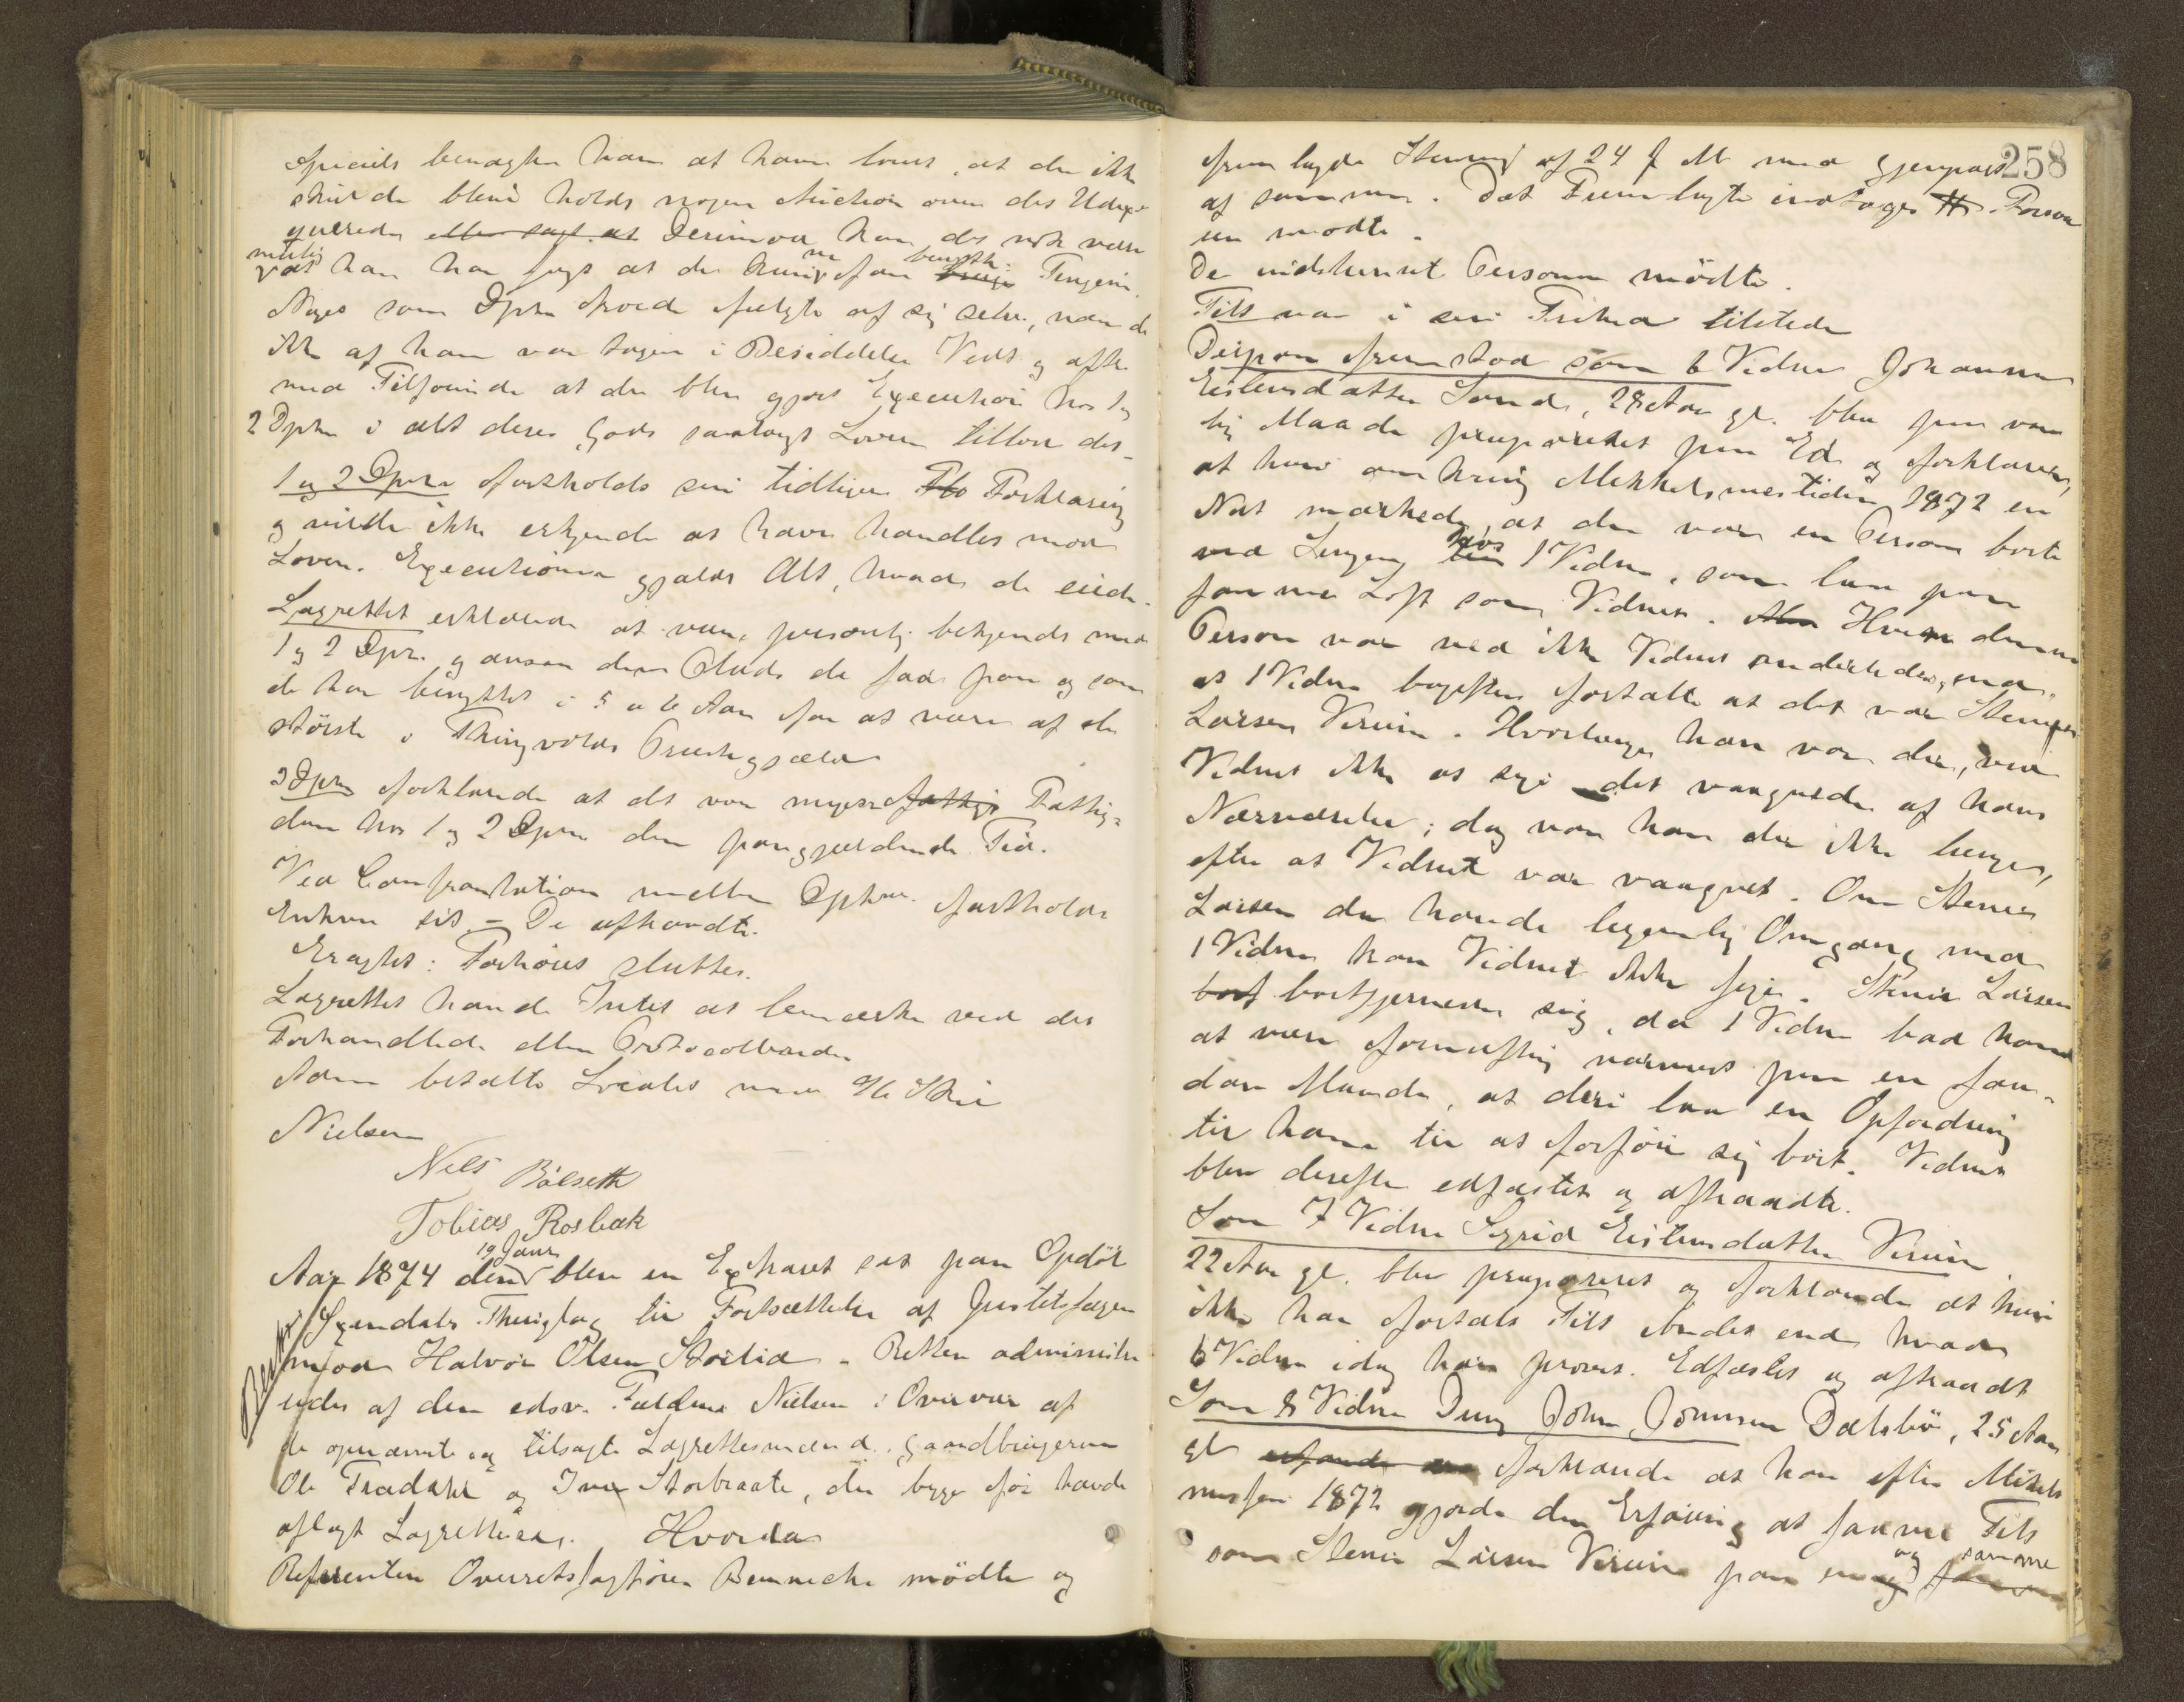 Specielt benægter han at have lovet, at der ikke
skulde blive holdt nogen Auction over det Udexe-
querede eller sagt at Derimod kan det nok være
muligt
at han har sagt at de kunde faae benytte Tingene.
Noget som Dptn troede fulgte af sig selv, naar de
ikke af ham var tagen i Besiddelse Vedt. og afh.
med Tilføiende at der blev gjort Execution hos 1 og
2 Dptn i alt deres Gods saavidt Loven tillod det.
1 og 2 Dptn fastholdt sin tidligere Forklaring
og vilde ikke erkjende at have handlet mod
Loven. Executionen gjaldt Alt, hvad de eiede.
Lagrettet erklærede at være personlig bekjendt med
1 og 2 Dptn. og ansaa den Plads de sad paa og som
de har benyttet i 5 a 6 Aar for at være af de
største i Thingvolds Præstegjæld
3 Dptn forklarede at det var megen fattigs Fattig-
dom hos 1 og 2 Dptn den paagjældende Tid.
Ved Confrontation mellem Dptne. fastholdt
Enhver sit. – De afhandte.
Eragtet: Forhøret sluttes.
Lagrettet havde Intet at bemærke ved det
Forhandlede eller Protocollerede
Adm betalte Localet med
Nielsen
Nils Bålseth
Tobias Rosbak
Aar 1874 den 19 Janr blev en Extraret sat paa Opdøl
Thinglag til Fortsættelse af Justitssagen
mod Halvor Olsen Storlid. Retten administre-
redes af den edsv. Fuldm Nielsen i Overvær af
de opnævnte og tilsagte Lagrettesmænd, Gaardbrugerne
Ole og Iver Storbraate, der begge før havde
aflagt Lagretteed. Hvorda
Referenten Overretssagfører Bennecke mødte og
258
fremlagde Stevning af 24 f M med Gjenpart
af samme. Det Fremlagte indtages #. Person
en mødte.
De indstevnte Personer mødte.
Tilt var i sin Frihed tilstede
Derpaa fremstod som 6 Vidne Johanna
Eilevsdatter Sande, 28 Aar gl. blev paa van
lig Maade præpareret paa Ed og forklarer,
at hun omkring Mekkelsmestiden 1872 en
Nat mærkede, at der var en Person borte
ved Sengen hos 1 Vidne, som laae paa
samme Loft som Vidnet. Hvem denne
Person var ved ikke Vidnet anderledes, end
at 1 Vidne bagefter fortalte at det var Stener
Larsen Viruin. Hvorlænge han var der, ved
Vidnet ikke at sige det vaagnede af hans
Nærværelse; dog var han der ikke længe,
efter at Vidnet var vaagnet. Om Stener
Larsen da havde legemlig Omgang med
1 Vidne kan Vidnet ikke sige. Stener Larsen
bort bortfjernede sig, da 1 Vidne bad ham
at være fornuftig nærmest paa en saa-
dan Maade, at deri laa en Opfordring
til ham til at forføie sig bort. Vidnet
blev derefter edfæstet og afhandte.
Som 7 Vidne Sigrid Eilevsdatter Viruin
22 Aar gl. blev præpareret og forklarede at hun
ikke har fortalt Tilt Andet end hvad
6 Vidne idag har prov. Edfæstet og afhandt
Som 8 Vidne Dreng John Jonsen Dalsbø, 25 Aar
gl forklarede at han efter Mikels
messen 1872 gjorde den Erfaring at saavel Tilt
som Stener Larsen Viruin paa en og samme